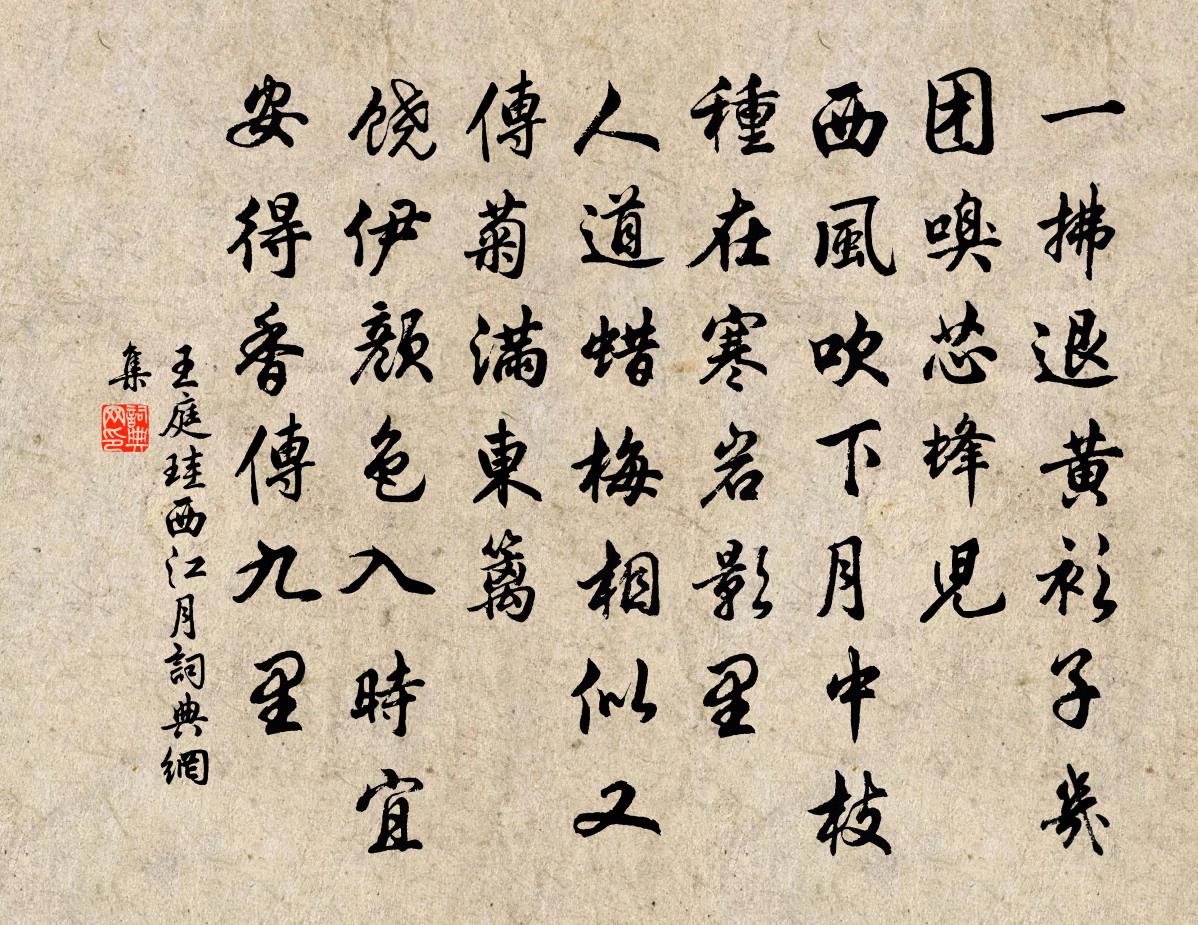 一拂退黄衫子幾
团嗅芯蜂児
西風吹下月中枝
種在寒岩影里
人道蜡梅相似又
傳菊滿東篱
饶伊顏色入時宜
安得香傳九里
王庭珪西江月詞典網
集
詞典
网印